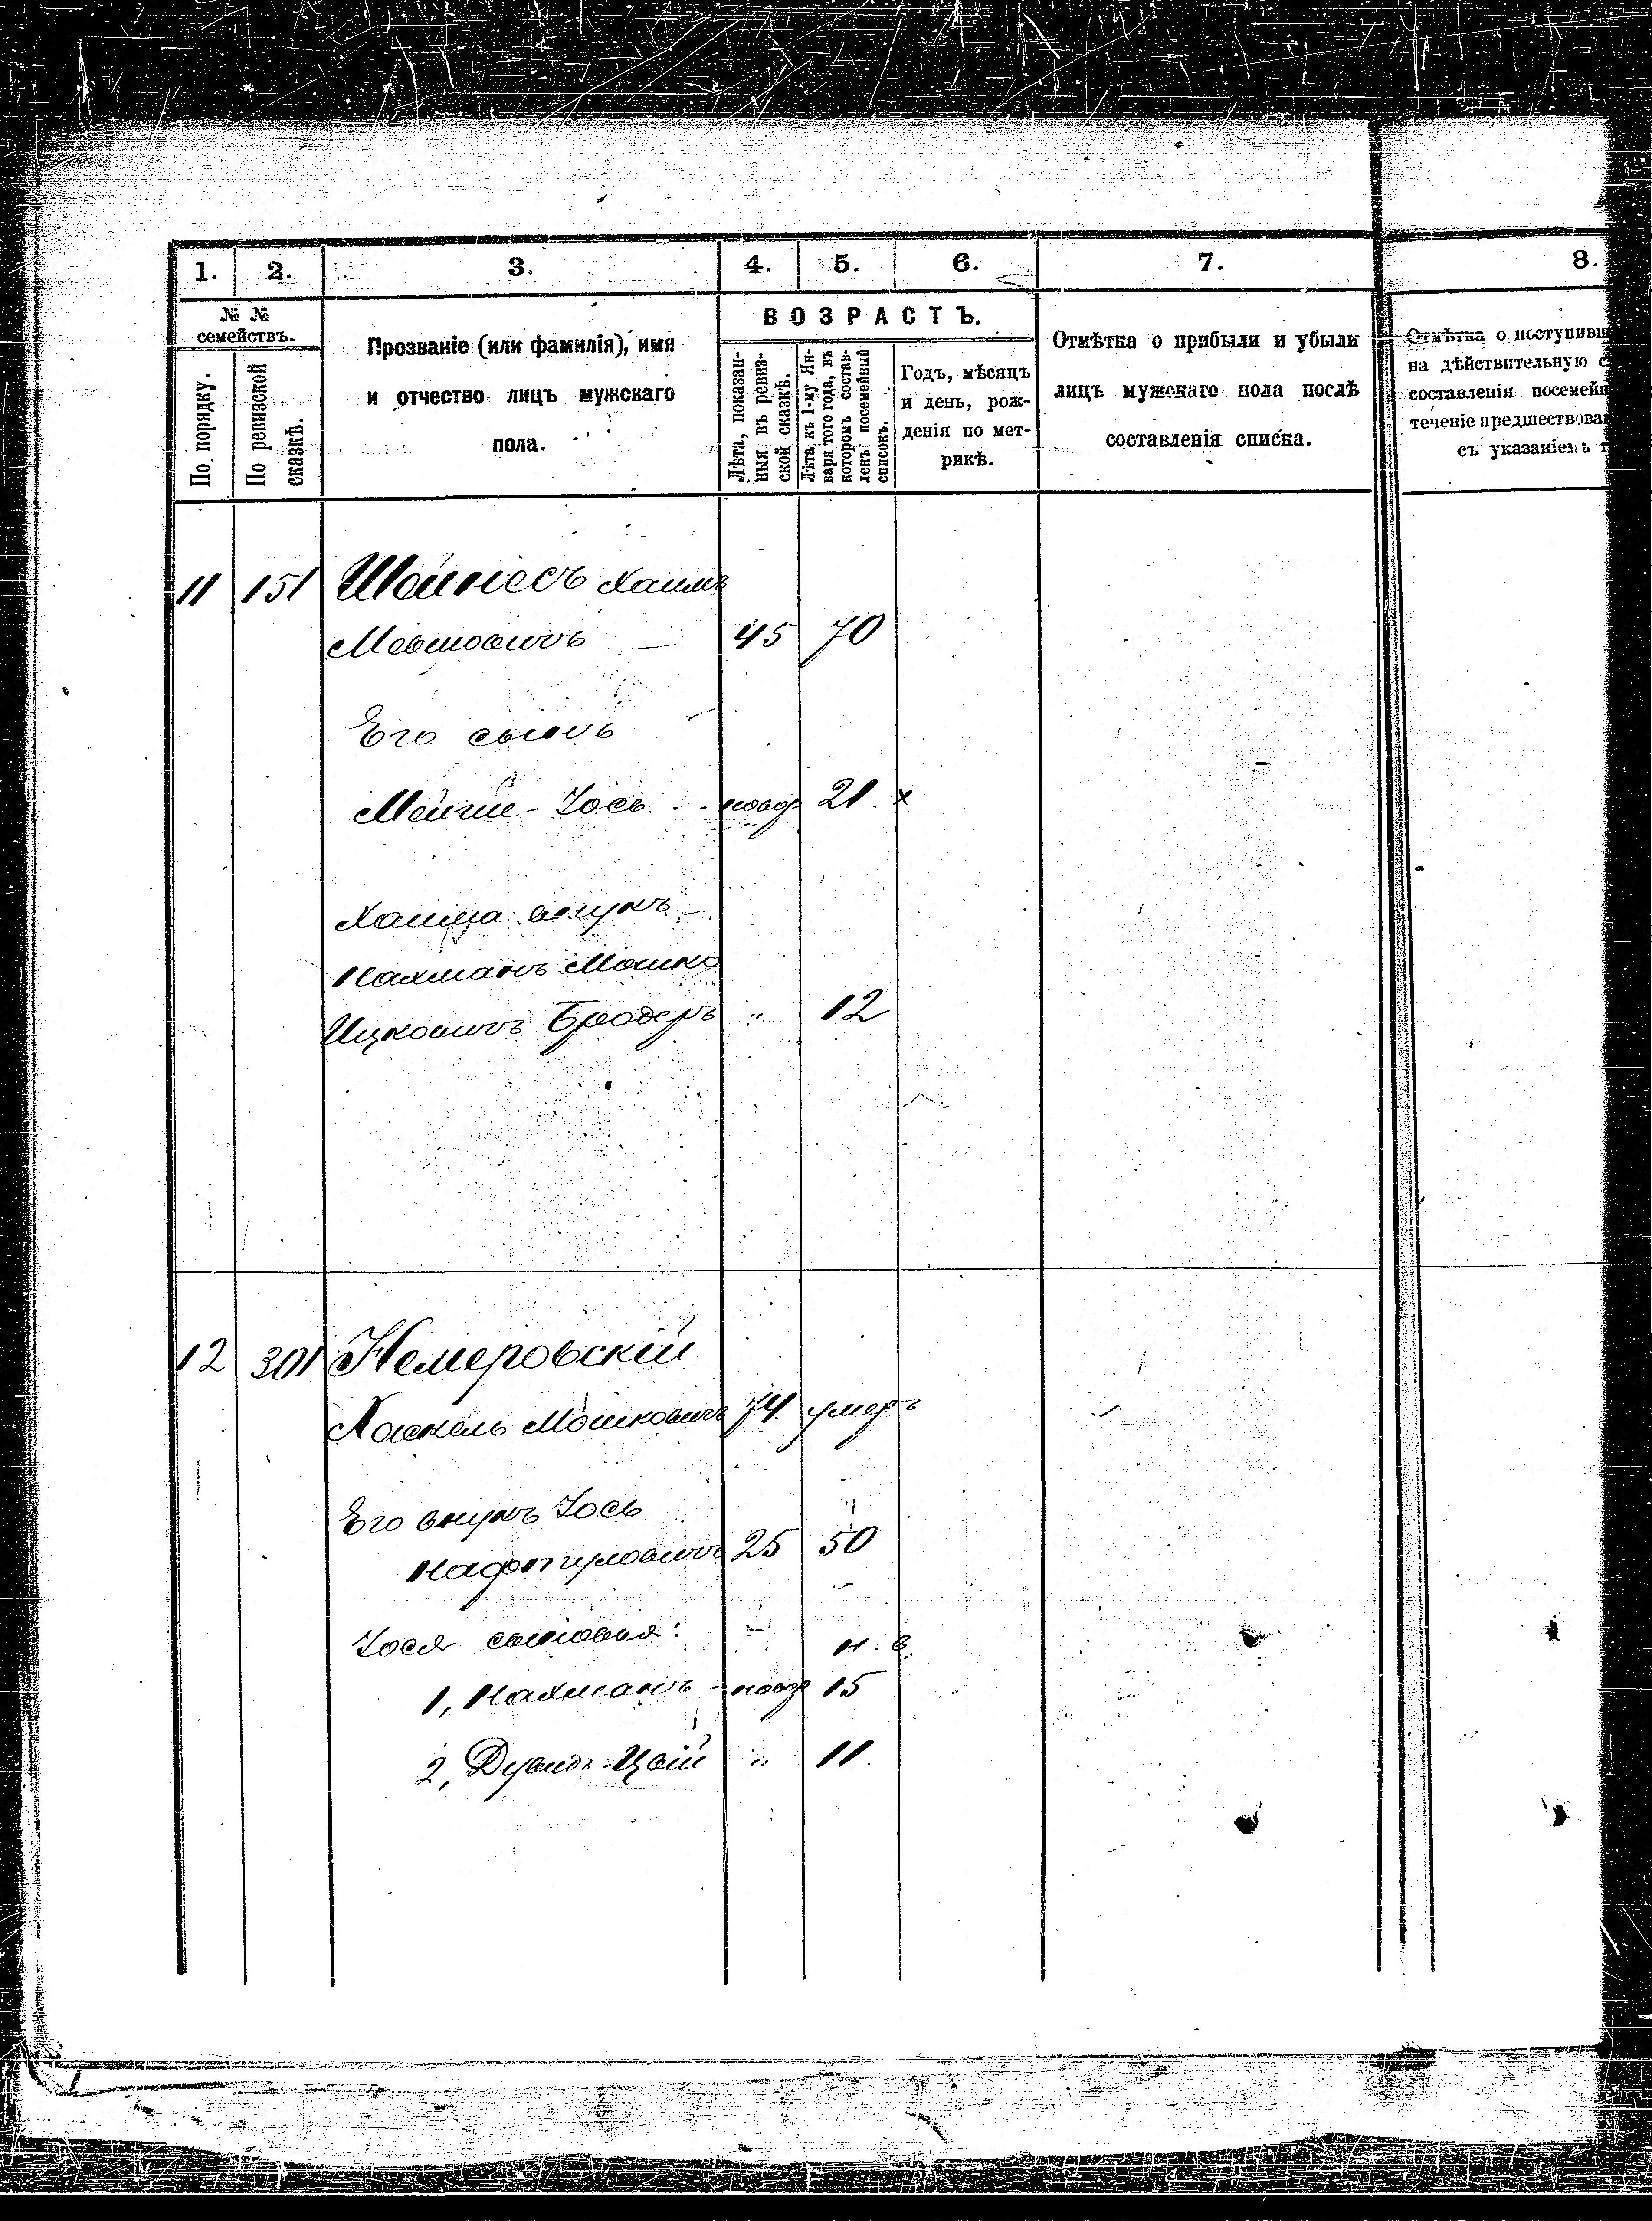 1. 2. 3. 4. 5. 6. 7. 8.
№ №
семействъ.
По порядку.
По ревизской
сказкѣ.
Прозваніе (или фамилія), имя
и отчество лицъ мужскаго
пола.
ВОЗРАСТЪ.
Лѣта, показан-
ныя въ ревиз-
ской сказкѣ.
Лѣта къ 1-му Ян-
варя того года, въ
которомъ состав-
ленъ посемейный
списокъ.
Годъ, мѣсяцъ
и день, рож-
денія по мет-
рикѣ.
Отмѣтка о прибыли и убыли
лицъ мужскаго пола послѣ
составленія списка.
Отмѣтка о поступивш
на дѣйствительную с
составленія посемейн
теченіе предшествова
съ указаніемъ
11 151 Шейнесъ Хаимъ
45 70
Его сынъ
Іось новор 21. х
Хаима внукъ
Нахманъ Мошко
Ицковичъ Бродеръ " 12
12 301 Немеровскій
Хаскель Мошковичъ 74. умеръ
Его внукъ Іось
Нафтуловичъ 25 50
Іося сыновья: н. в.
1, Нахманъ - новор 15
2, Дувидъ-Цвій " 11.